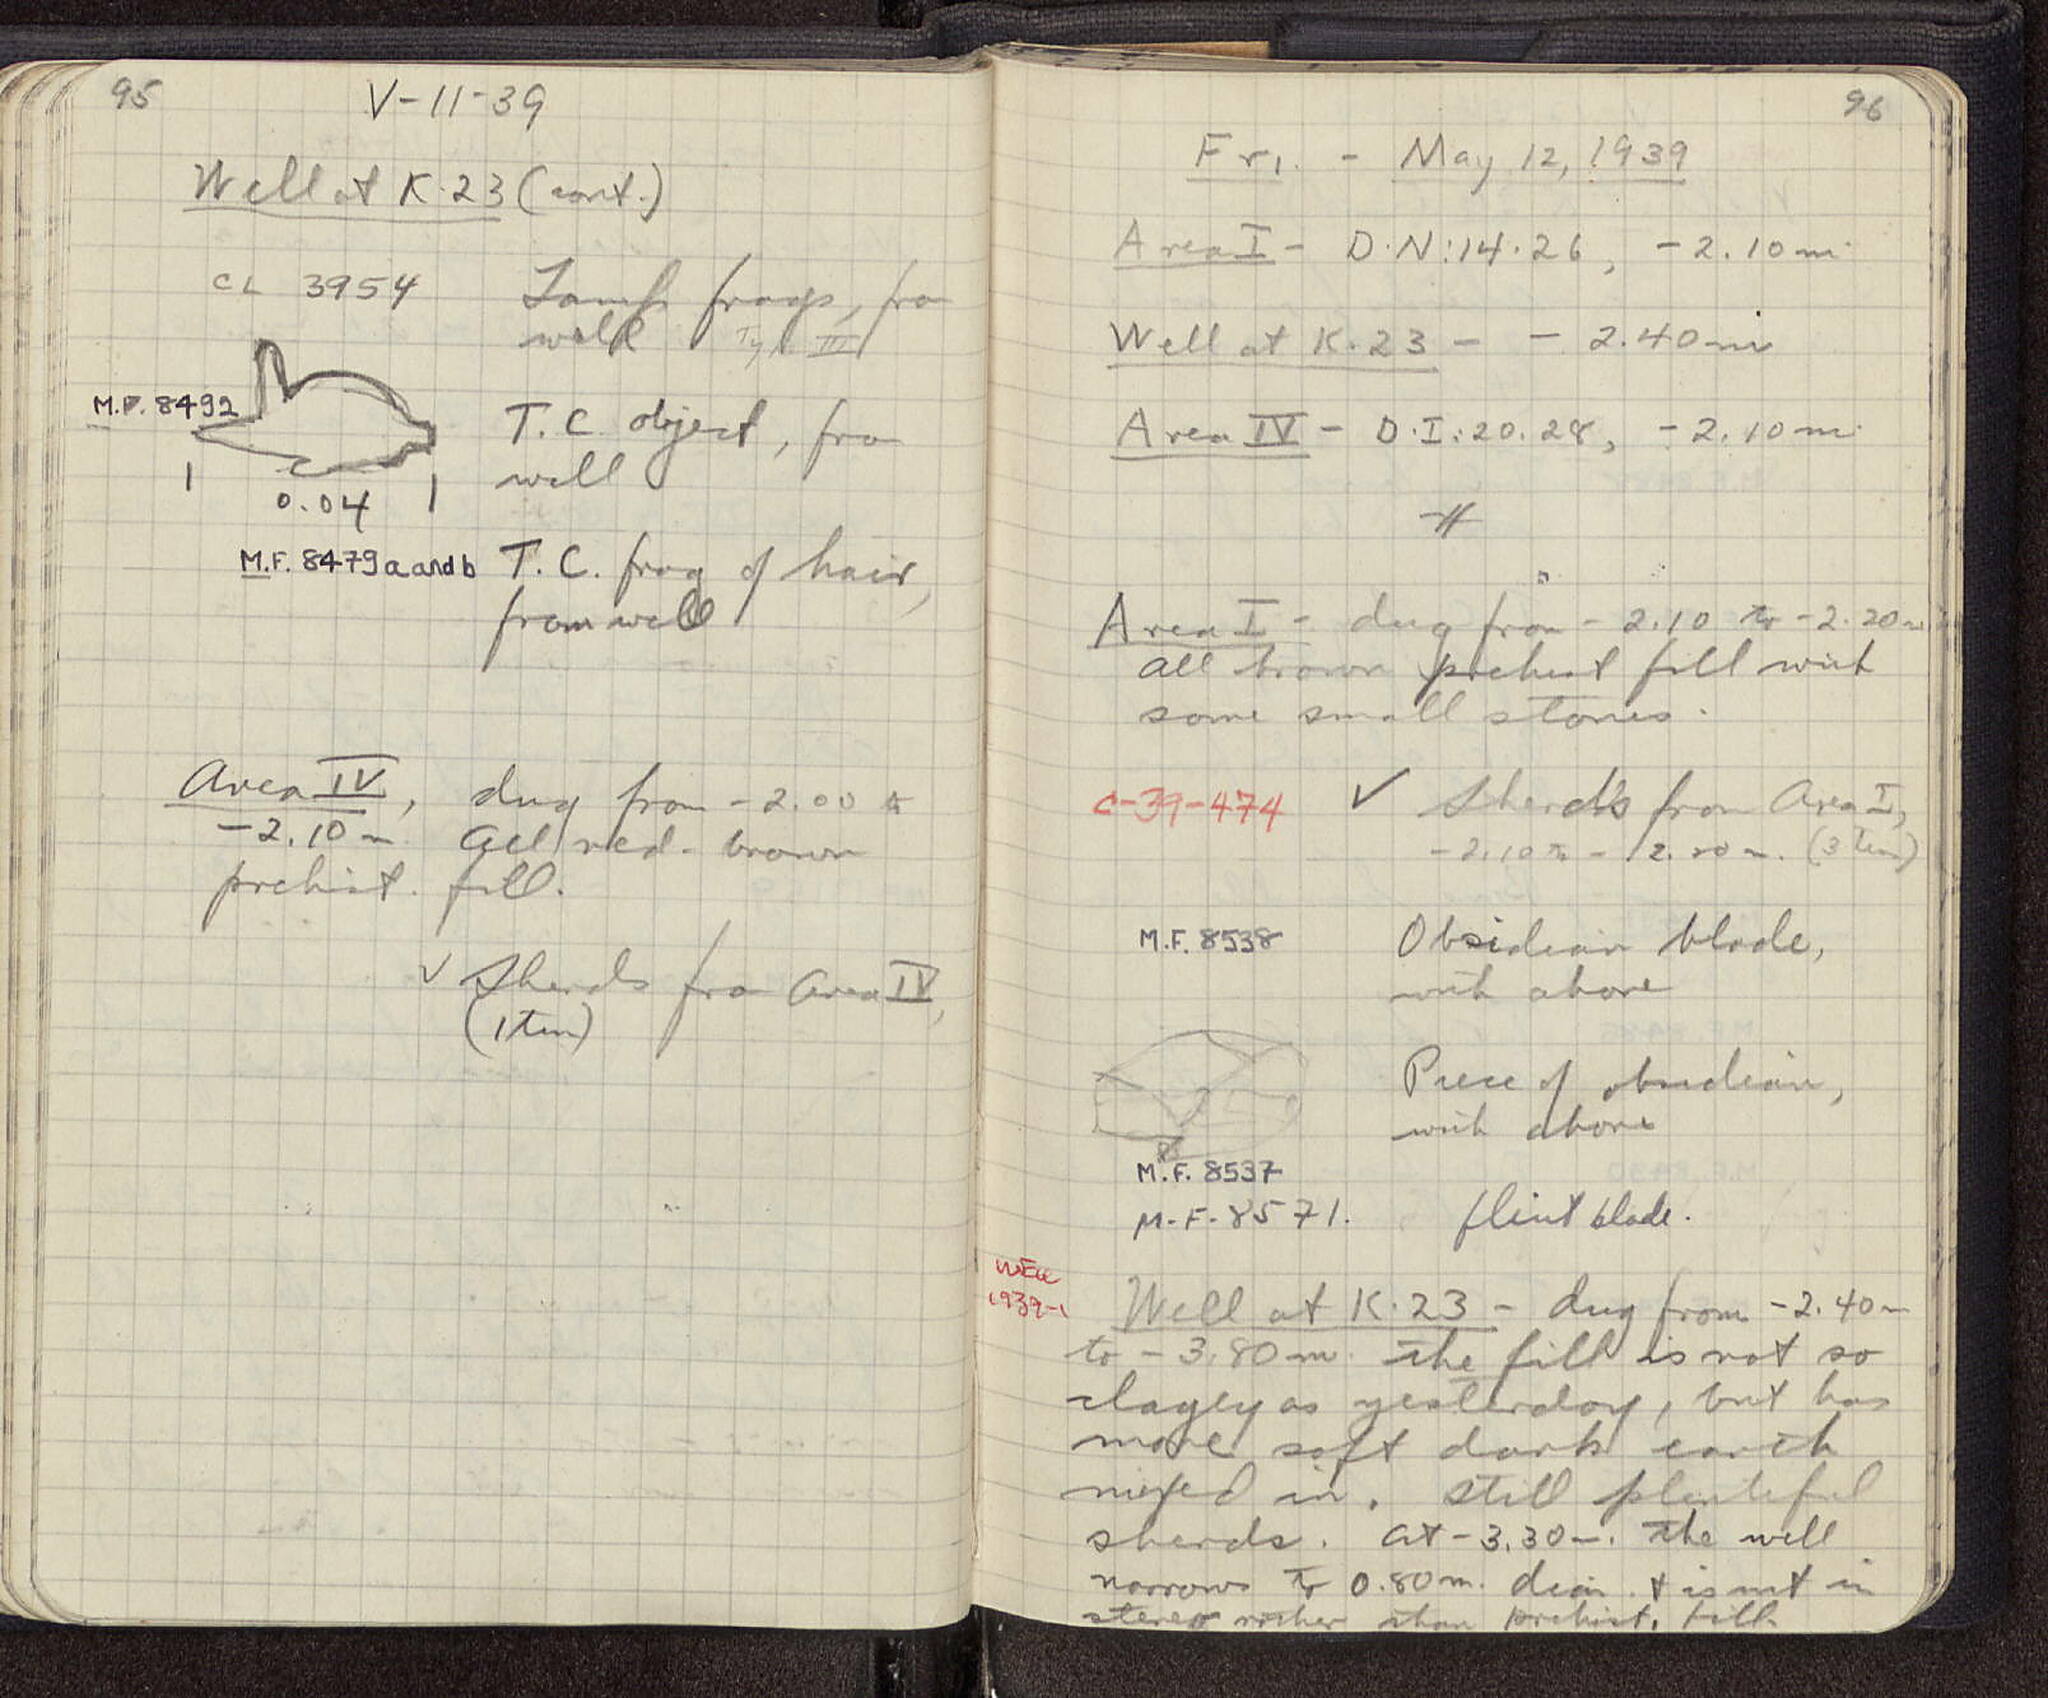 95
V-11-39
Well at K.23 (cont.)
CL 3954 Lamp frags, fro
well Type III
M.F. 8492
T.C. object, fro
well
0.04
M.F. 8479 a and b T.C. frag of hair,
from well
Area IV, dug from -2.00 to
-2.10 m. All red-brown
prehist. fill.
✓ Sherds fro Area IV,
(1 tin)
96
Fri. - May 12, 1939
Area I - D.N:14.26, -2.10 m.
Well at K.23 - -2.40 m
Area IV - D.I:20.28, -2.10 m.
Area I - dug from -2.10 to -2.20 m
all brown prehist fill with
some small stones.
C-39-474 ✓ Sherds from Area I,
-2.10 to -2.20 m. (3 tins)
M.F. 8538 Obsidian blade,
with above
Piece of obsidian,
with above
M.F. 8537
M.F. 8571. flint blade.
Well
1939-1
Well at K.23 - dug from -2.40 m
to -3.80 m. The fill is not so
clayey as yesterday, but has
more soft dark earth
mixed in. Still plentiful
sherds. At -3.30 m. the well
narrows to 0.80 m. diam. + is cut in
stereo rather than prehist. fill.